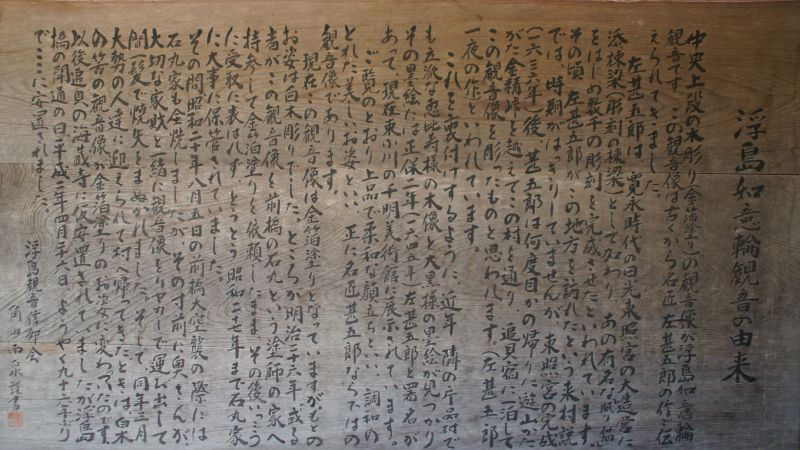 浮島如意輪観音の由来
中央上段の木彫り(金箔塗り)の観音像が浮島如意輪
観音です。この観音像は古くから名匠左甚五郎の作と伝
えられてきました。
左甚五郎は、寛永時代の日光東照宮の大造営に
添棟梁(彫刻の棟梁)として加わり、あの有名な眠り猫
をはじめ数千の彫刻を完成させたといわれています。
その頃、左甚五郎がこの地方を訪れたという来村説
では、時期がはっきりしていませんが、東照宮の完成
(一六三六年)後、甚五郎は何度目かの帰りに遊山かた
がた金精峠を越えてこの村を通り、追貝宿に一泊して
この観音像を彫ったものと思われます。(左甚五郎
一夜の作といわれています。
これを裏付けするように、近年、隣の片品村で
も立派な恵比寿様の木像と大黒様の墨絵が見つかり
その墨絵には正保二年(一六四五年)左甚五郎と署名が
あって、現在東小川の千明美術館に展示されています。
ご覧のとおり上品で柔和な顔立ちといい、調和の
とれた美しいお姿といい、正に名匠甚五郎ならではの
観音像であります。
現在この観音像は金箔塗りとなっていますがもとの
お姿は白木彫りでした。ところが明治二十六年、或る
者がこの観音像を前橋の石丸という塗師の家へ
持参して金箔塗りを依頼したまま、その後いっこう
た受取に表はれず、とうとう昭和二十七年まで石丸家
に大事に保管されていました。
その間、昭和二十年八月五日の前橋大空襲の際には
石丸家も全焼しましたが、その寸前に奥さんが、
大切な家財と一緒に観音像をリヤカーで運び出して
間一髪で焼失をまぬがれました。そして、同年三月
大勢の人達に迎えられて村へ帰ってきたときは白木
の筈の観音像が金箔塗りのお姿に変わってたのです。
以後追貝の海蔵寺に仮安置されていましたが浮島
橋の開通の日、平成二年四月二十六日、ようやく九十六年ぶり
でここに安置されました。
浮島観音信仰会
角田
謹書